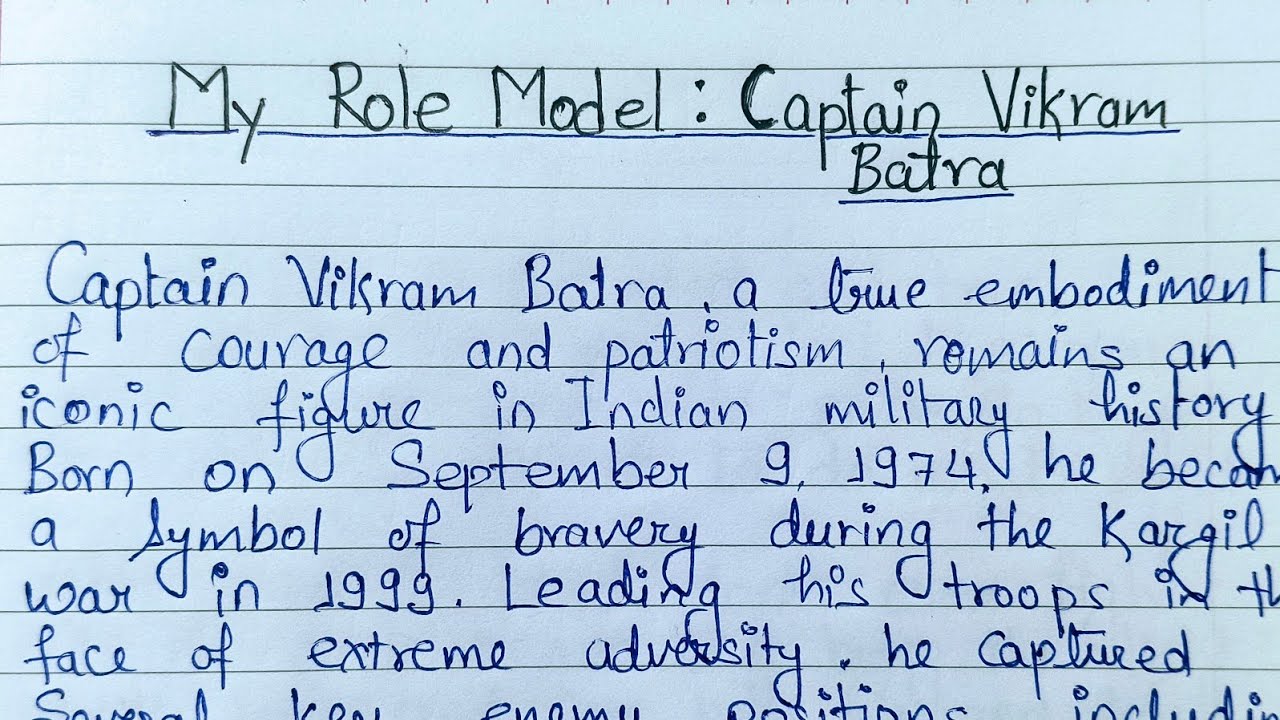 My Role Model : Captain Vikram
Batra
Captain Vikram Batra, a true embodiment
of courage and patriotism, remains an
iconic figure in Indian military history
Born on September 9, 1974, he becam
a symbol of bravery during the Kargil
war in 1999. Leading his troops in th
face of extreme adversity, he captured
Several key enemy positions includin